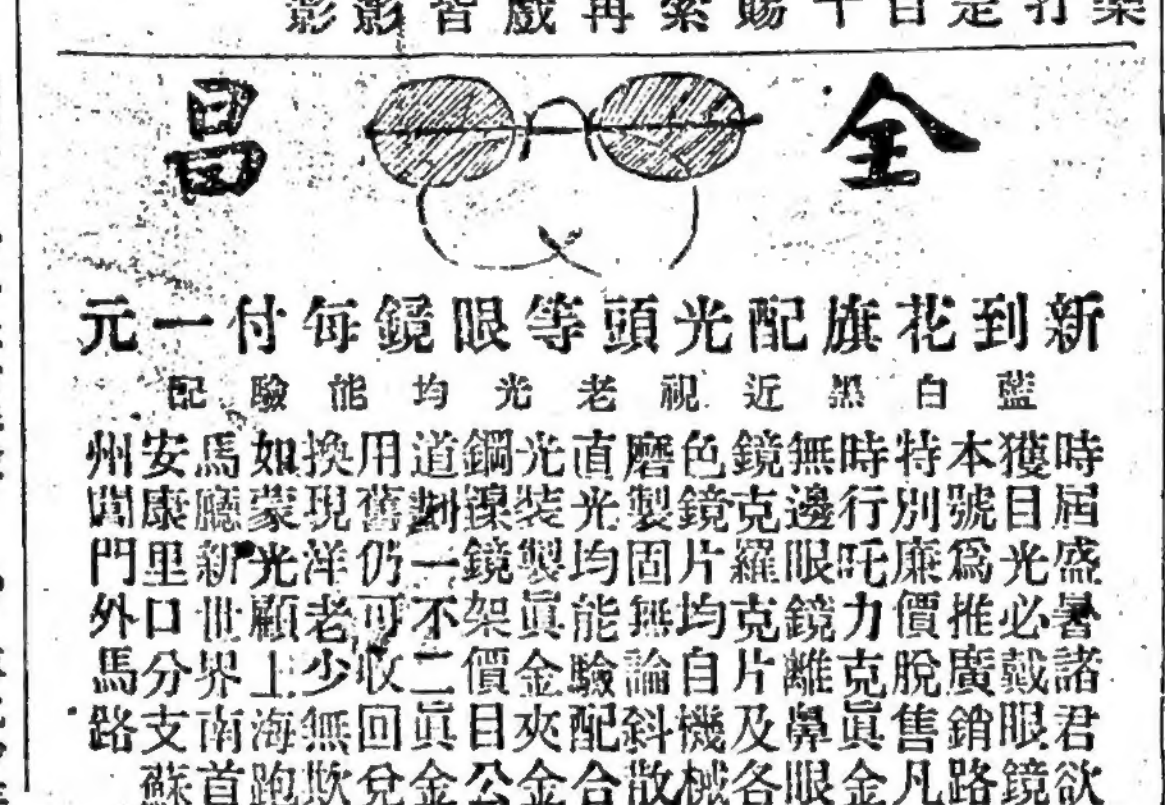 金昌
新到花旗配光頭等眼鏡每付一元
藍白黑近視老光均能驗配
時屆盛暑諸君欲
獲目光必戴眼鏡
本號爲推廣銷路
特別廉價脫售凡
時行吒力克眞金
無邊眼鏡離鼻眼
鏡克羅克片及各
色鏡片均自機械
磨製固無論斜散
直光均能驗配合
光裝製眞金夾金
鋼鎳鏡架價目公
道劃一不二眞金
用舊仍可收回兌
換現洋老少無欺
如蒙光顧上海跑
馬廳新世界南首
安康里口分支蘇
州閶門外馬路